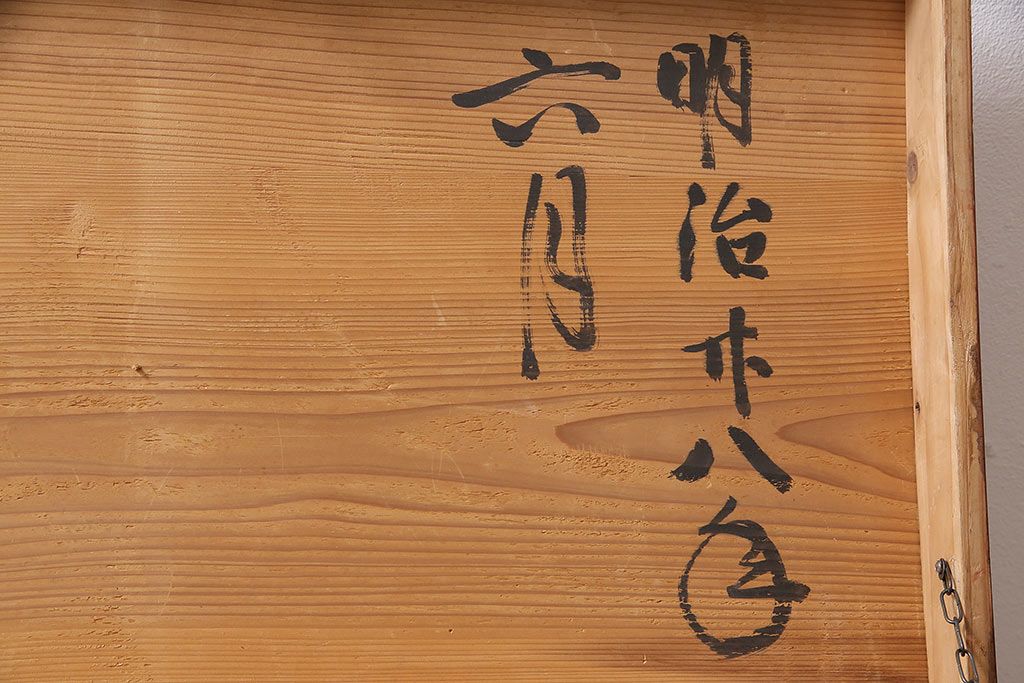 明治卅八年
六月